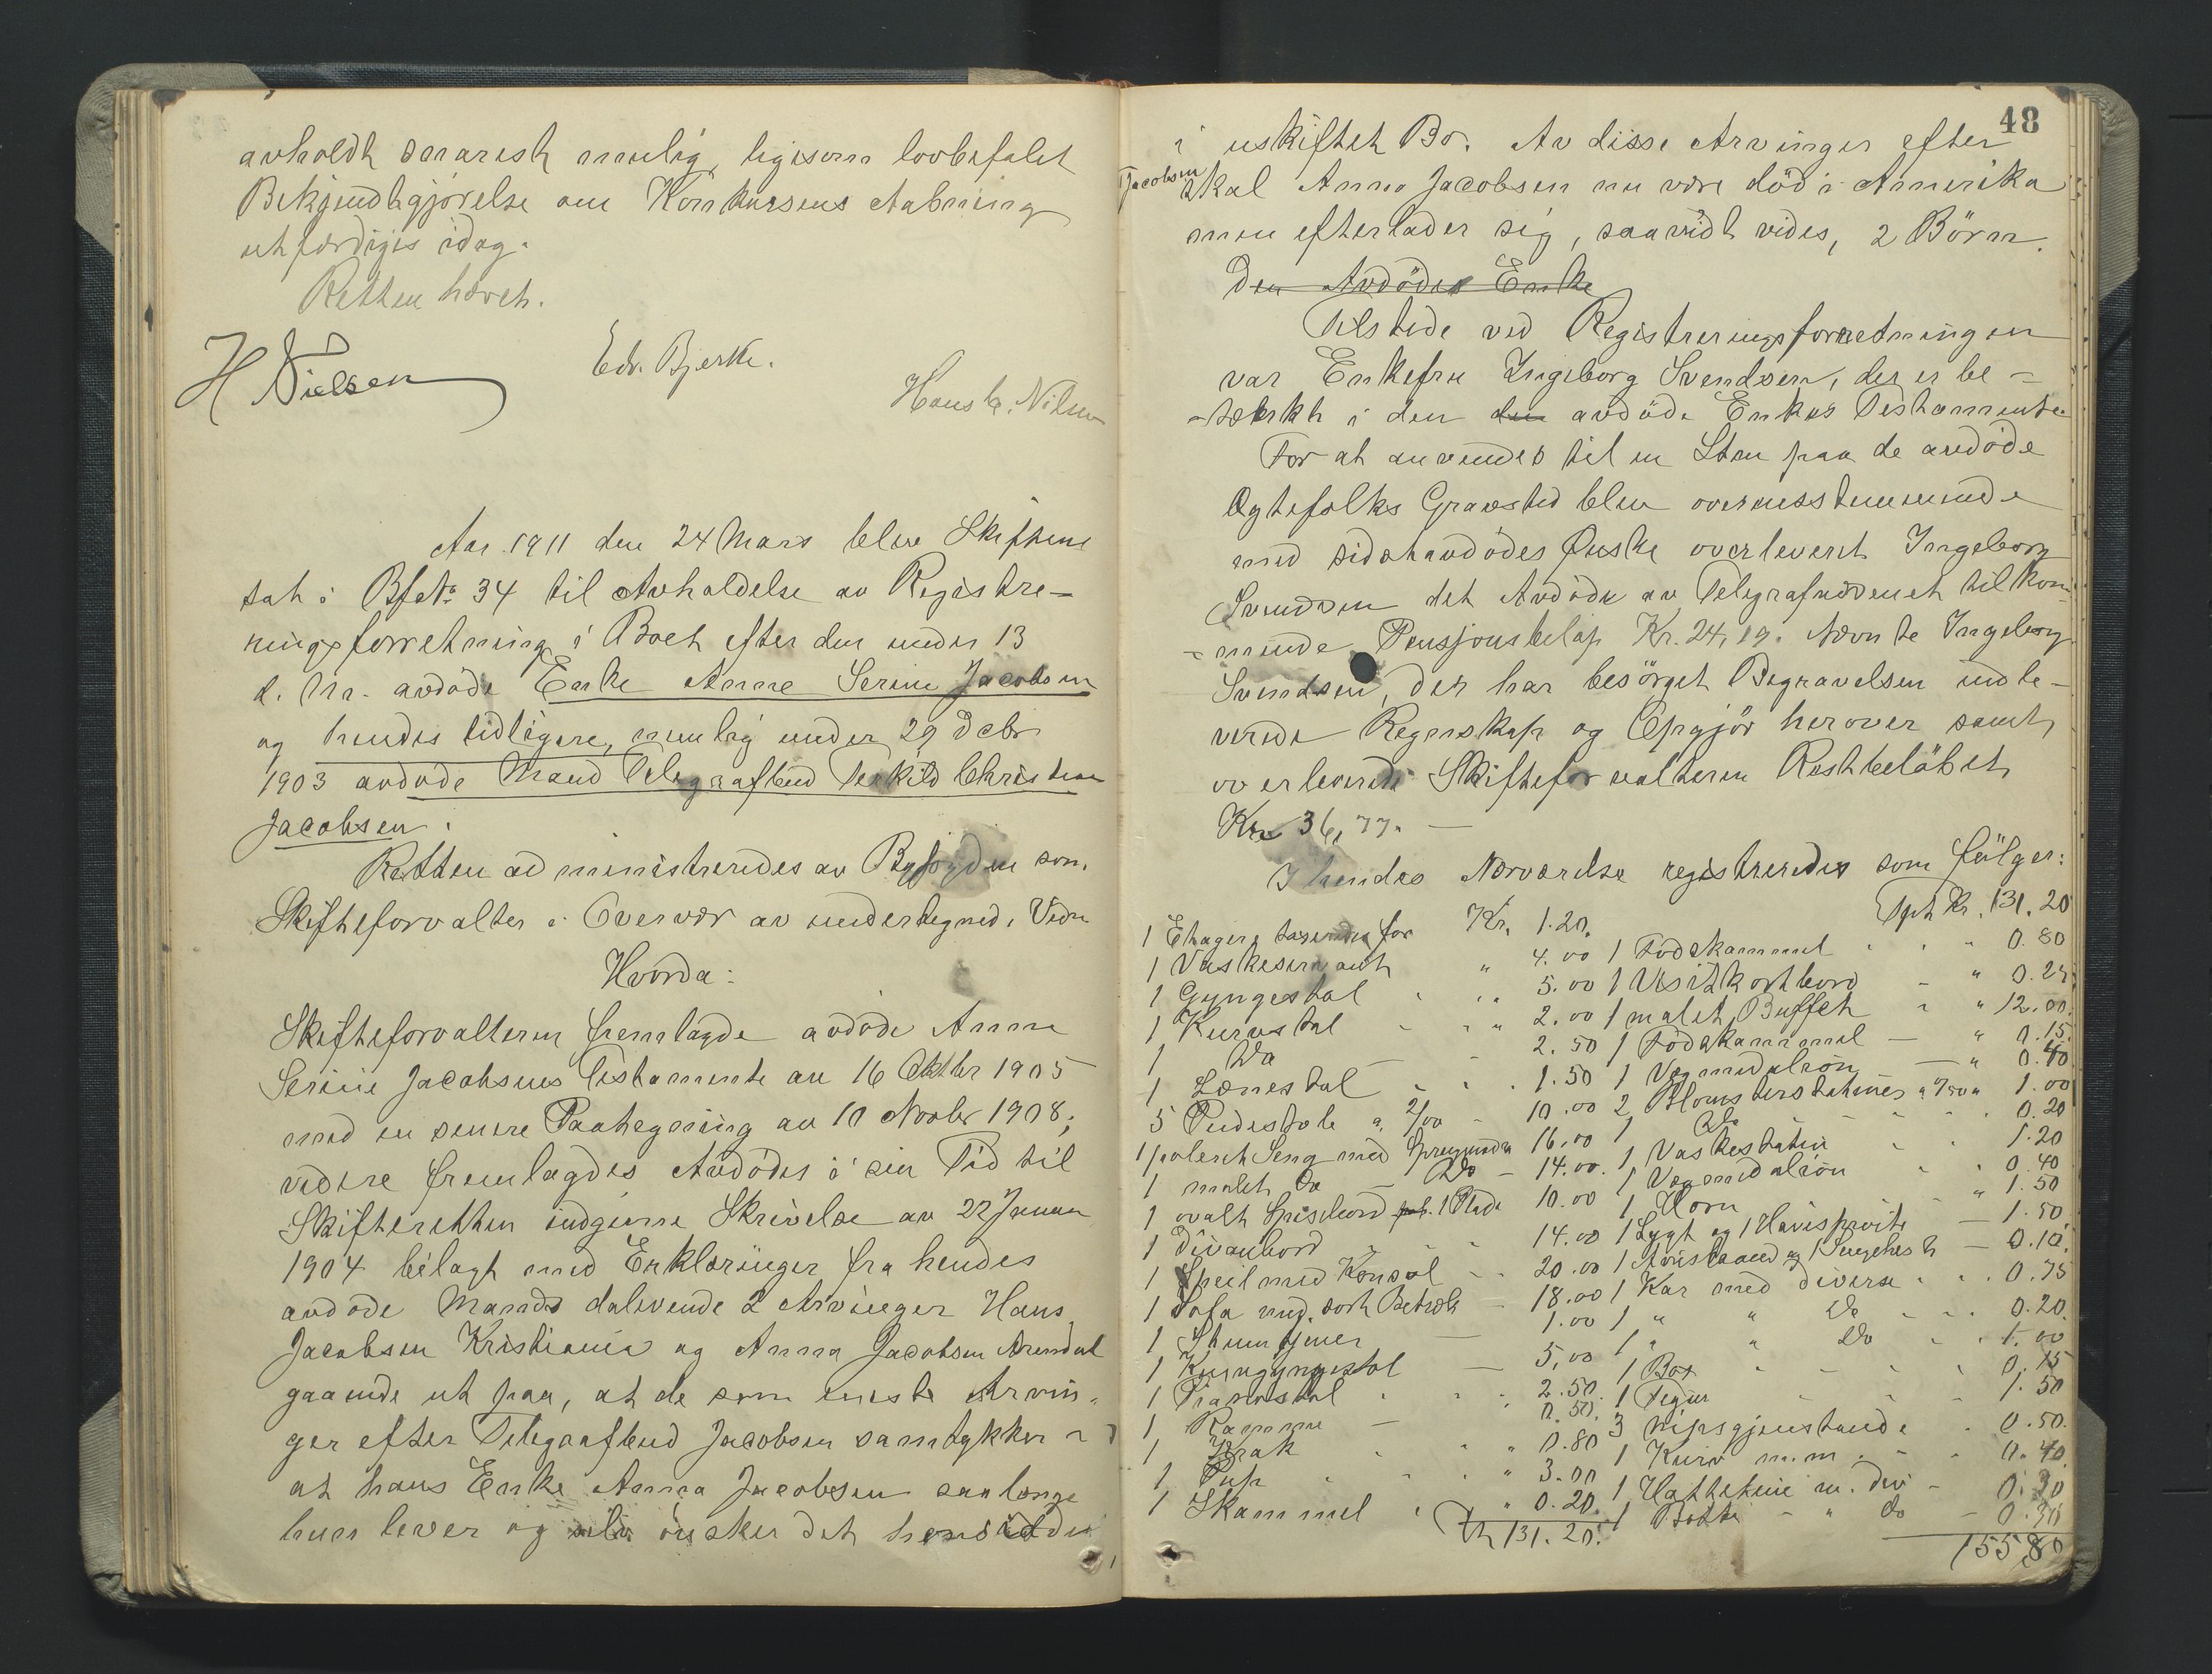 avholdt snarest mulig, ligesom lovbefalet
Bekjendtgjörelse om Konkursens Aabning
utfærdiges idag.
Retten hævet.
H Nielsen
Edv. Bjerke.
Hans C. Nilsen
Aar 1911 den 24 Mars blev Skifteret
sat i Bf No 34 til Avholdelse av Registre-
ringsforretning i Boet efter den under 13
d. M. avdöde Enke Anne Serine Jacobsen
og hendes tidligere, nemlig under 29 Decbr
1903 avdöde Mand Telegrafbud Terkild Christian
Jacobsen.
Retten administreredes av Byfogden som
Skifteforvalter i Overvær av undertegnede Vidn
Hvorda:
Skifteforvalteren fremlagde avdöde Anne
Serine Jacobsens Testamente av 16 Oktbr 1905
med en senere Paategning av 10 Novbr 1908;
videre fremlagdes Avdödes i sin Tid til
Skifteretten indgivne Skrivelse av 22 Januar
1904 bilagt med Erklæringer fra hendes
avdöde Mands dalevende 2 Arvinger Hans
Jacobsen Kristiania og Anna Jacobsen Arendal
gaaende ut paa, at de som eneste Arvin-
ger efter Telegrafbud Jacobsen samtykker i
at hans Enke Anna Jacobsen saalænge
hun lever og selv önsker det hensidder
48
i uskiftet Bo. Av disse Arvinger efter
Jacobsen skal Anna Jacobsen nu være död i Amerika
men efterlader sig, saavidt vides, 2 Börn.
Den Avdödes Enke
Tilstede ved Registreringsforretningen
var Enkefru Ingeborg Svendsen, der er be-
-tænkt i den den avdöde Enkes Testamente
For at anvendes til en Sten paa de avdöde
Egtefolks Gravsted blev overensstemmende
med sidstavdödes Önske overlevert Ingeborg
Svendsen det Avdöde av Telegrafvæsenet tilkom-
-mende Pensjonsbelöp Kr. 24,19. Nævnte Ingeborg
Svendsen, der har besörget Begravelsen indle-
verede Regnskap og Opgjör herover samt
overleverede Skifteforvalteren Restbelöbet
Kr 36,77. —
I hendes Nærværelse registreredes som fölger:
1 Etagere taxeredes for Kr. 1.20.
1 Vaskeservant " 4.00
1 Gyngestol " 5.00
1 Kurvstol " 2.00
1 Do — 2.50
1 Lænestol 1.50
5 Pindestole a 2/00 10.00
1 poleret Seng med Springmadr 16.00
1 malet Do Do — 14.00.
1 ovalt Spisebord 1 Plade 10.00
1 Divanbord 14.00
1 Speil med Konsol 20.00
1 Sofa med sort Betræk 18.00
1 Stumtjener — 1.00
1 Kurvgyngestol — 5,00
1 Pianostol 2.50.
1 Ramme — 0.50.
1 Krak " 0.80
1 Puf " 3.00
1 Skammel " 0.20.
Tr 131.20.
Tpt Kr. 131.20
1 Fodskammel " 0.80
1 Visitkortbord " 0.25
1 malet Buffet " 12.00.
1 Fodskammel — " 0.15.
1 Vægmedalion — " 0.40
2 Blomsterstativer 1.00
1 Do 0.20
1 Vaskestativ 1.20
1 Vægmedalion 0.40
1 Horn " 1.50
1 Lygt og 1 Havesprøite — 1.50
— 0.10.
1 Kar med diverse 0.75
1 " " Do 0.20.
1 " " Do 1.00
1 Box 0.15
1 1.50
3 nipsgjenstande 0.50.
1 Kurv m.m. 0.40
1 Hatteskine m. div — 0.30
1 Bøtte " do — 0.30
155 80